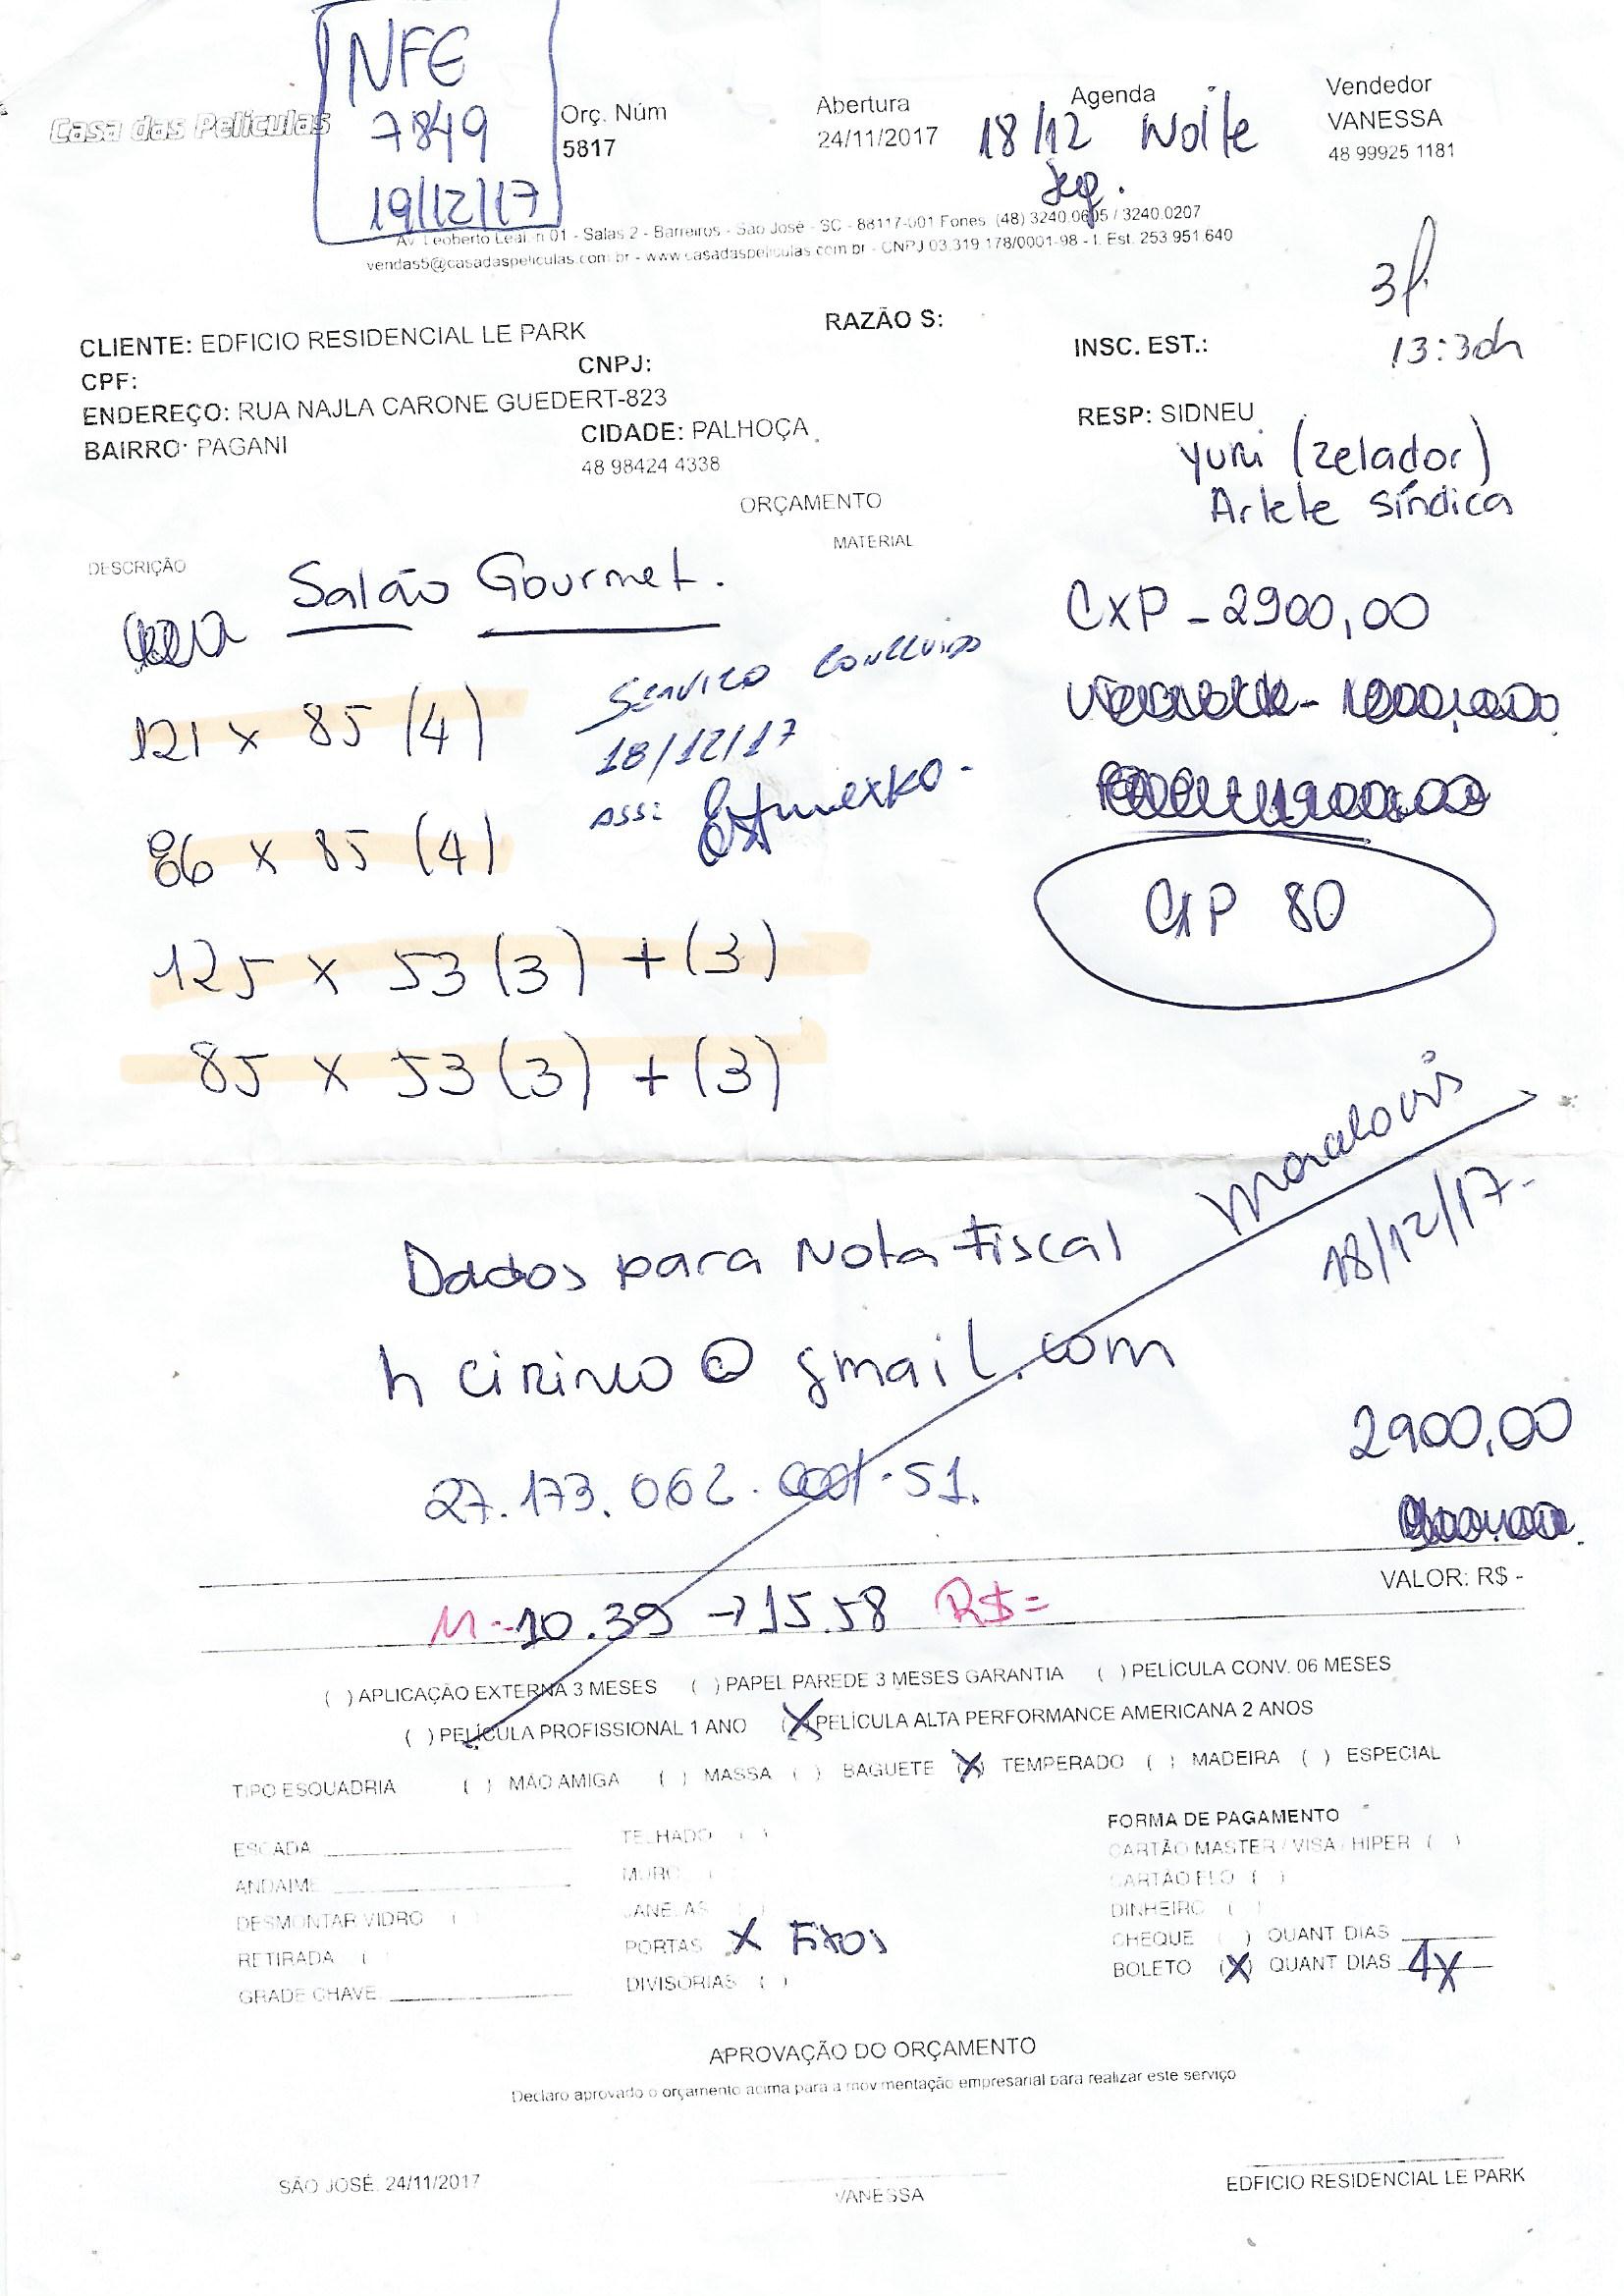 NFE
7849
19/12/17
Casa das Películas
Orç. Núm
5817
Abertura
24/11/2017
Agenda
18/12 Noite
Seg.
Vendedor
VANESSA
48 99925 1181
Av. Leoberto Leal, n 01 - Salas 2 - Barreiros - São José - SC - 88117-001 Fones (48) 3240.0605 / 3240.0207
vendas5@casadaspeliculas.com.br - www.casadaspeliculas.com.br - CNPJ 03.319.178/0001-98 - I. Est. 253.951.640
13:30h
CLIENTE: EDFICIO RESIDENCIAL LE PARK
RAZÃO S:
CPF:
CNPJ:
INSC. EST.:
ENDEREÇO: RUA NAJLA CARONE GUEDERT-823
BAIRRO: PAGANI
CIDADE: PALHOÇA
48 98424 4338
RESP: SIDNEU
Yuri (zelador)
Arlete síndica
ORÇAMENTO
DESCRIÇÃO
MATERIAL
Salão Gourmet.
CXP - 2900,00
121 x 85 (4)
Serviço concluído
18/12/17
ass:
86 x 85 (4)
125 x 53 (3) + (3)
85 x 53 (3) + (3)
80
18/12/17.
Dados para Nota Fiscal
h cirineo @ gmail.com
27.173.062. 51.
2900,00
VALOR: R$ -
M = 10.39 → 15.58 R$ =
( ) APLICAÇÃO EXTERNA 3 MESES ( ) PAPEL PAREDE 3 MESES GARANTIA ( ) PELÍCULA CONV. 06 MESES
( ) PELÍCULA PROFISSIONAL 1 ANO (X) PELÍCULA ALTA PERFORMANCE AMERICANA 2 ANOS
TIPO ESQUADRIA ( ) MÃO AMIGA ( ) MASSA ( ) BAGUETE (X) TEMPERADO ( ) MADEIRA ( ) ESPECIAL
ESCADA
ANDAIME
DESMONTAR VIDRO ( )
RETIRADA ( )
GRADE CHAVE
TELHADO ( )
MURO ( )
JANELAS ( )
PORTAS X Fixos
DIVISÓRIAS ( )
FORMA DE PAGAMENTO
CARTÃO MASTER / VISA / HIPER ( )
CARTÃO ELO ( )
DINHEIRO ( )
CHEQUE ( ) QUANT DIAS
BOLETO (X) QUANT DIAS 4x
APROVAÇÃO DO ORÇAMENTO
Declaro aprovado o orçamento acima para a movimentação empresarial para realizar este serviço
SÃO JOSÉ, 24/11/2017
VANESSA
EDFICIO RESIDENCIAL LE PARK